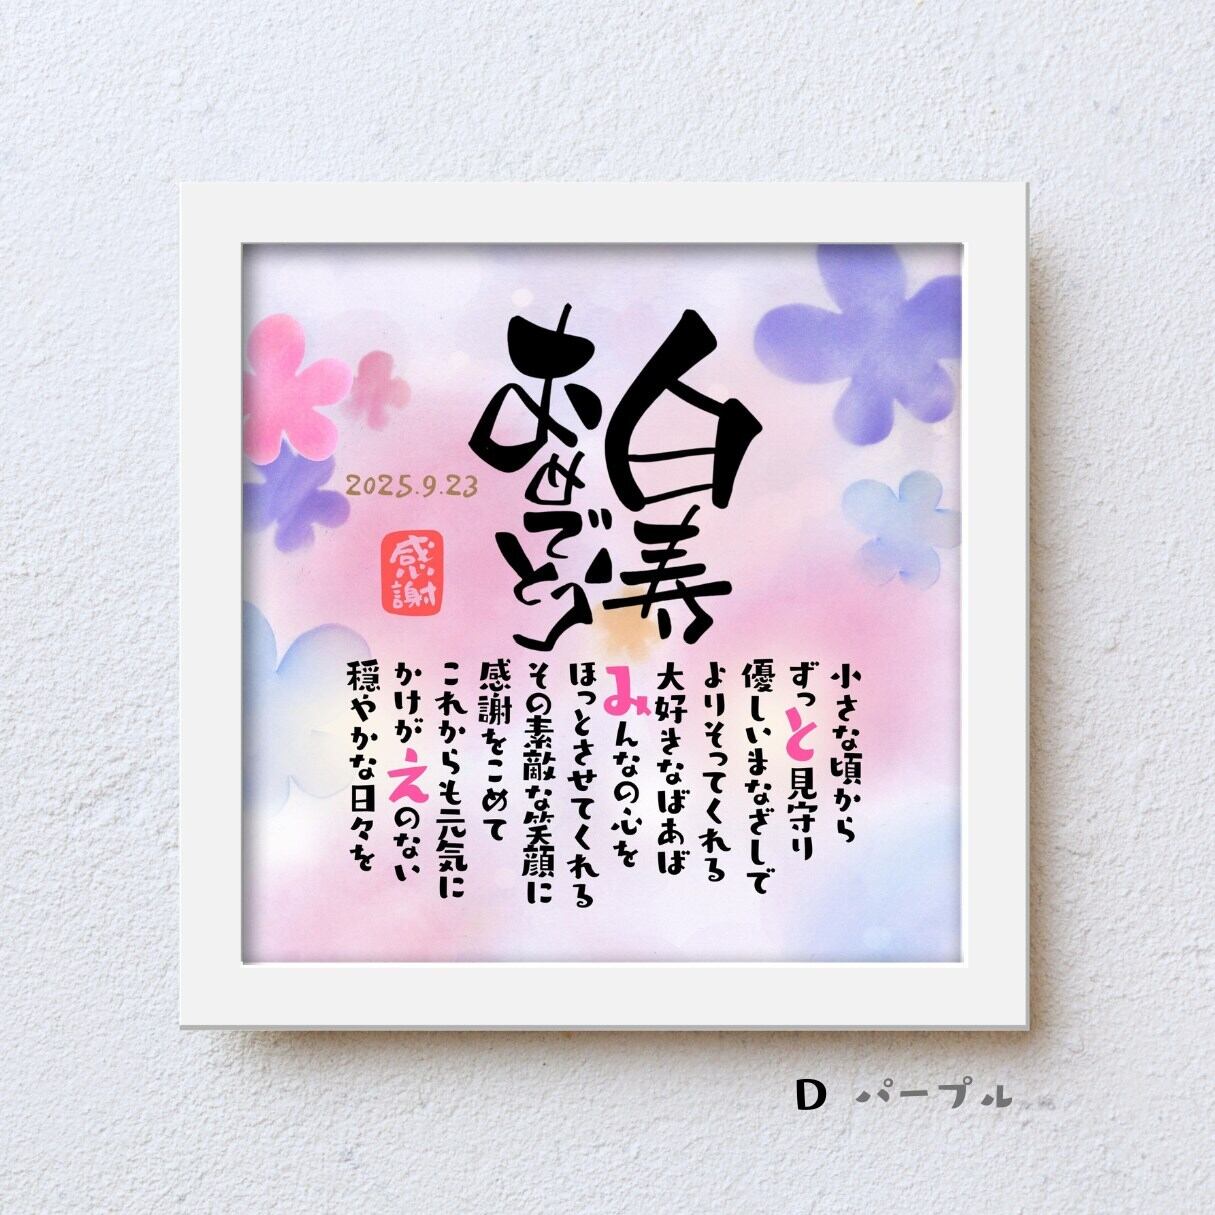 白寿
おめでとう
2025.9.23
感謝
小さな頃から
ずっと見守り
優しいまなざしで
よりそってくれる
大好きなばあば
みんなの心を
ほっとさせてくれる
その素敵な笑顔に
感謝をこめて
これからも元気に
かけがえのない
穏やかな日々を
D パープル